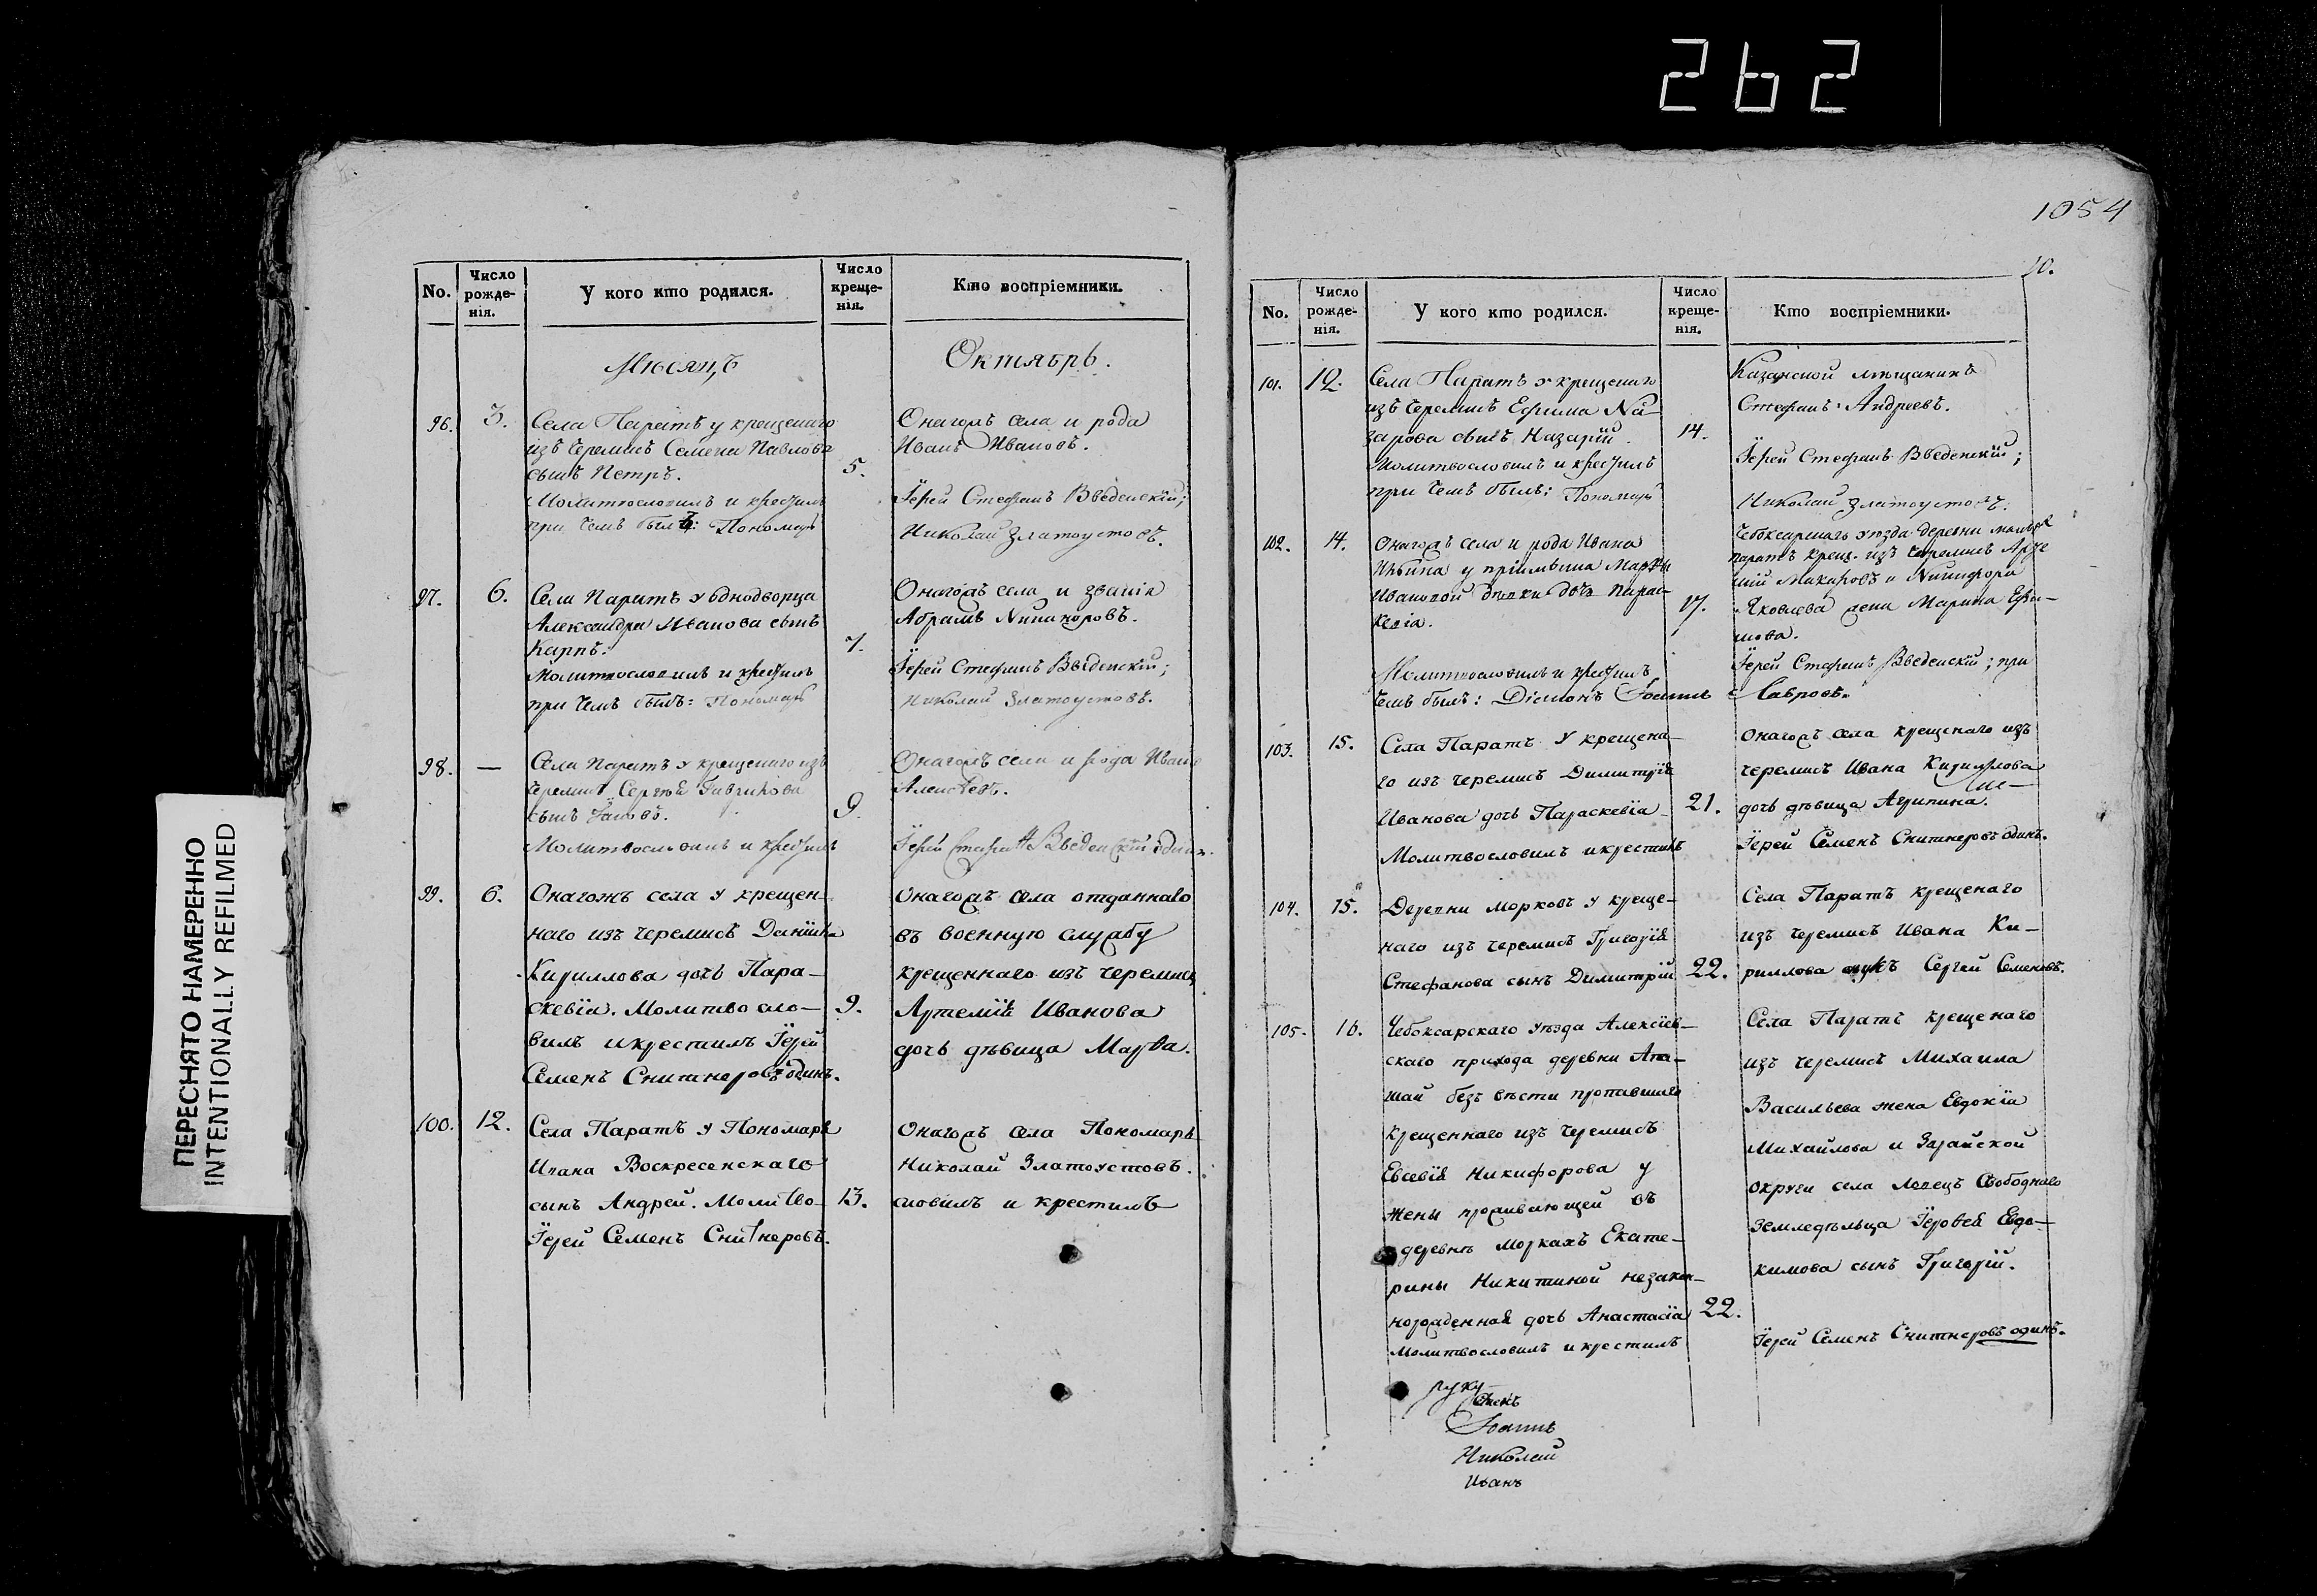 262
1054
ПЕРЕСНЯТО НАМЕРЕННО
INTENTIONALLY REFILMED
No.
Число рожде-нія.
У кого кто родился.
Число креще-нія.
Кто воспріемники.
Мѣсяцъ
Октябрь.
96.
3.
Села Паратъ у крещенаго
изъ Черемисъ Семена Павлова
сынъ Петръ.
Молитвословилъ и крестилъ
при чемъ былъ: Пономарь
5.
Онагожъ села и рода
Иванъ Ивановъ.
Іерей Стефанъ Введенскій;
Николай Златоустовъ.
97.
6.
Села Паратъ у однодворца
Александра Иванова сынъ
Карпъ.
Молитвословилъ и крестилъ
при чемъ былъ: Пономарь
7.
Онагожъ села и званія
Абрамъ Никаноровъ.
Іерей Стефанъ Введенскій;
Николай Златоустовъ.
98.
—
Села Паратъ у крещенаго изъ
Черемисъ Сергѣя Гаврилова
сынъ
Молитвословилъ и крестилъ
9.
Онагожъ села и рода Иванъ
Алексѣевъ.
Іерей Стефанъ Введенскій одинъ.
99.
6.
Онагожъ села у крещен-
наго изъ черемисъ Даніила
Кириллова дочь Пара-
скевіа. Молитвосло-
вилъ и крестилъ Іерей
Семенъ Снитнеровъ одинъ.
9.
Онагожъ села отданнаго
въ военную службу
крещеннаго изъ черемисъ
Артемія Иванова
дочь дѣвица Марѳа.
100.
12.
Села Паратъ у Пономаря
Ивана Воскресенскаго
сынъ Андрей. Молитво-
Іерей Семенъ Снитнеровъ.
13.
Онагожъ села Пономарь
Николай Златоустовъ.
словилъ и крестилъ
No.
Число рожде-нія.
У кого кто родился.
Число креще-нія.
Кто воспріемники.
101.
12.
Села Паратъ у крещенаго
изъ Черемисъ Ефима На-
зарова сынъ Назарій.
Молитвословилъ и крестилъ
при чемъ былъ: Пономарь
14.
Казанской мѣщанинъ
Стефанъ Андреевъ.
Іерей Стефанъ Введенскій;
Николай Златоустовъ.
102.
14.
Онагожъ села и рода Ивана
Ильина у
Ивановой дочь Парас-
кевіа.
Молитвословилъ и крестилъ
чемъ былъ: Діаконъ Іоаннъ Лавровъ.
17.
Чебоксарскаго уѣзда деревни
Паратъ крещ. изъ Черемисъ
Макаровъ и Никифора
Яковлева жена Марина Ефи-
мова.
Іерей Стефанъ Введенскій; при
103.
15.
Села Паратъ у крещена-
го изъ черемисъ Димитрія
Иванова дочь Параскевіа
Молитвословилъ и крестилъ
21.
Онагожъ села крещенаго изъ
черемисъ Ивана Кириллова
дочь дѣвица Агрипина.
Іерей Семенъ Снитнеровъ одинъ.
104.
15.
Деревни Морковъ у креще-
наго изъ черемисъ Григорія
Стефанова сынъ Димитрій
22.
Села Паратъ крещенаго
изъ черемисъ Ивана Ки-
риллова внукъ Сергей Семеновъ.
105.
16.
Чебоксарскаго уѣзда Алексіев-
скаго прихода деревни Апа-
шай безъ вѣсти пропавшаго
крещеннаго изъ черемисъ
Евсевія Никифорова у
жены проживающей въ
деревнѣ Моркахъ Екате-
рины Никитиной незакон-
норожденная дочь Анастасіа
Молитвословилъ и крестилъ
22.
Села Паратъ крещенаго
изъ черемисъ Михаила
Васильева жена Евдокіа
Михайлова и Зарайской
округи села Ловецъ Свободнаго
Земледѣльца Іероѳея Евдо-
кимова сынъ Григорій.
Іерей Семенъ Снитнеровъ одинъ.
руку
Іоаннъ
Николай
Иванъ